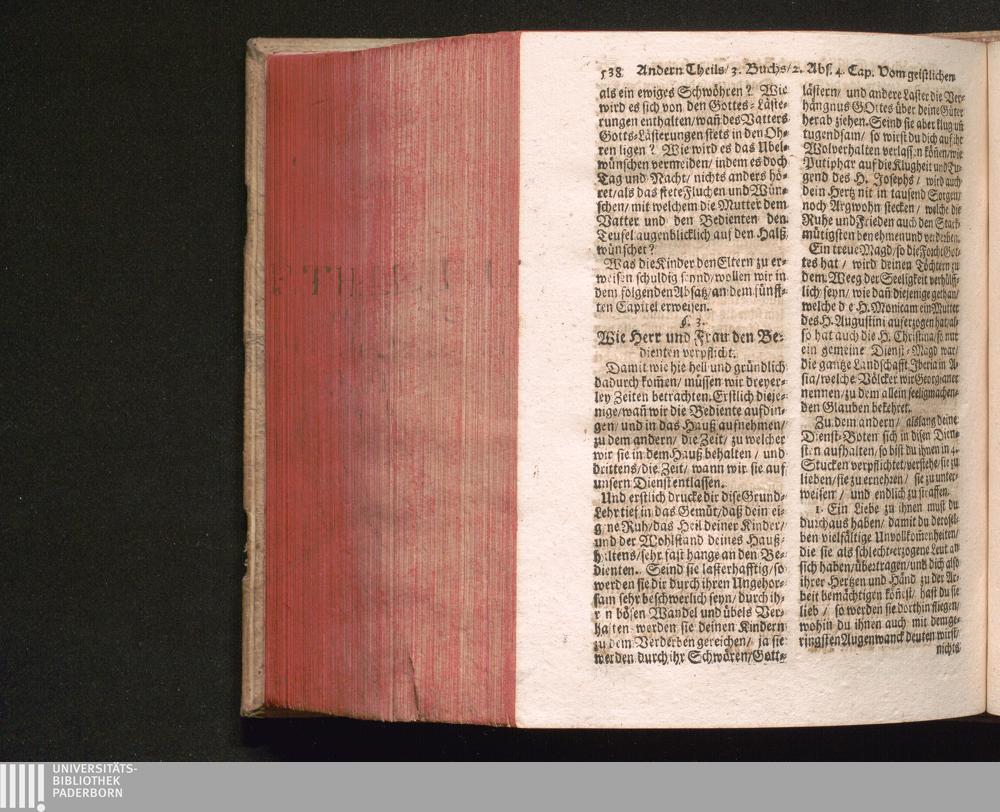 538 Andern Theils/ 3. Buchs/ 2. Abs. 4. Cap. Vom geistlichen
als ein ewiges Schwöhren? Wie
wird es sich von den Gottes-Läste-
rungen enthalten/ wañ des Vatters
Gotts-Lästerungen stets in den Oh-
ren ligen? Wie wird es das Ubel-
wünschen vermeiden/ indem es doch
Tag und Nacht/ nichts anders hö-
ret/ als das stete Fluchen und Wün-
schen/ mit welchem die Mutter dem
Vatter und den Bedienten den
Teufel augenblicklich auf den Halß
wünschet?
Was die Kinder den Eltern zu er-
weisen schuldig seynd/ wollen wir in
dem folgenden Absatz/ an dem fünff-
ten Capitel erweisen.
§. 3.
Wie Herr und Frau den Be-
dienten verpflicht.
Damit wie hie hell und gründlich
dadurch kom̃en/ müssen wir dreyer-
ley Zeiten betrachten. Erstlich dieje-
nige/ wañ wir die Bediente aufdin-
gen/ und in das Hauß aufnehmen/
zu dem andern/ die Zeit/ zu welcher
wir sie in dem Hauß behalten/ und
drittens/ die Zeit/ wann wir sie auf
unsern Dienst entlassen.
Und erstlich drucke dir dise Grund-
Lehr tief in das Gemüt/ daß dein ei-
g ne Ruh/ das Heil deiner Kinder/
und der Wohlstand deines Hauß-
haltens/ sehr fast hange an den Be-
dienten. Seind sie lasterhafftig/ so
werden sie dir durch ihren Ungehor-
sam sehr beschwerlich seyn/ durch ih-
r n bösen Wandel und übels Ver-
halten werden sie deinen Kindern
zu dem Verderben gereichen/ ja sie
werden durch ihr Schwären/ Gott-
lästern/ und andere Laster die Ver-
hängnus GOttes über deine Güter
herab ziehen. Seind sie aber klug uñ
tugendsam/ so wirst du dich auf ihr
Wolverhalten verlassen köñen/ wie
Putiphar auf die Klugheit und Tu-
gend des H. Josephs/ wird auch
dein Hertz nit in tausend Sorgen/
noch Argwohn stecken/ welche die
Ruhe und Frieden auch den Starck-
mütigsten benehmen und verderben.
Ein treue Magd/ so die Forcht Got-
tes hat/ wird deinen Töchtern zu
dem Weeg der Seeligkeit verhülff-
lich seyn/ wie dañ diejenige gethan/
welche d e H. Monicam ein Mutter
des H. Augustini auferzogen hat/ al-
so hat auch die H. Christina/ so nur
ein gemeine Dienst-Magd war/
die gantze Landschafft Iberia in A-
sia/ welche Völcker wir Georgianer
nennen/ zu dem allein seeligmachen-
den Glauben bekehret.
Zu dem andern/ alslang deine
Dienst-Boten sich in disen Dien-
sten aufhalten/ so bist du ihnen in 4.
Stucken verpflichtet/ verstehe/ sie zu
lieben/ sie zu ernehren/ sie zu unter-
weisen/ und endlich zu straffen.
1. Ein Liebe zu ihnen must du
durchaus haben/ damit du derosel-
ben vielfältige Unvollkom̃enheiten/
die sie als schlecht-erzogene Leut an
sich haben/ übertragen/ und dich also
ihrer Hertzen und Händ zu der Ar-
beit bemächtigen köñest/ hast du sie
lieb/ so werden sie dorthin fliegen/
wohin du ihnen auch mit dem ge-
ringsten Augenwanck deuten wirst/
nichts
UNIVERSITÄTS-
BIBLIOTHEK
PADERBORN